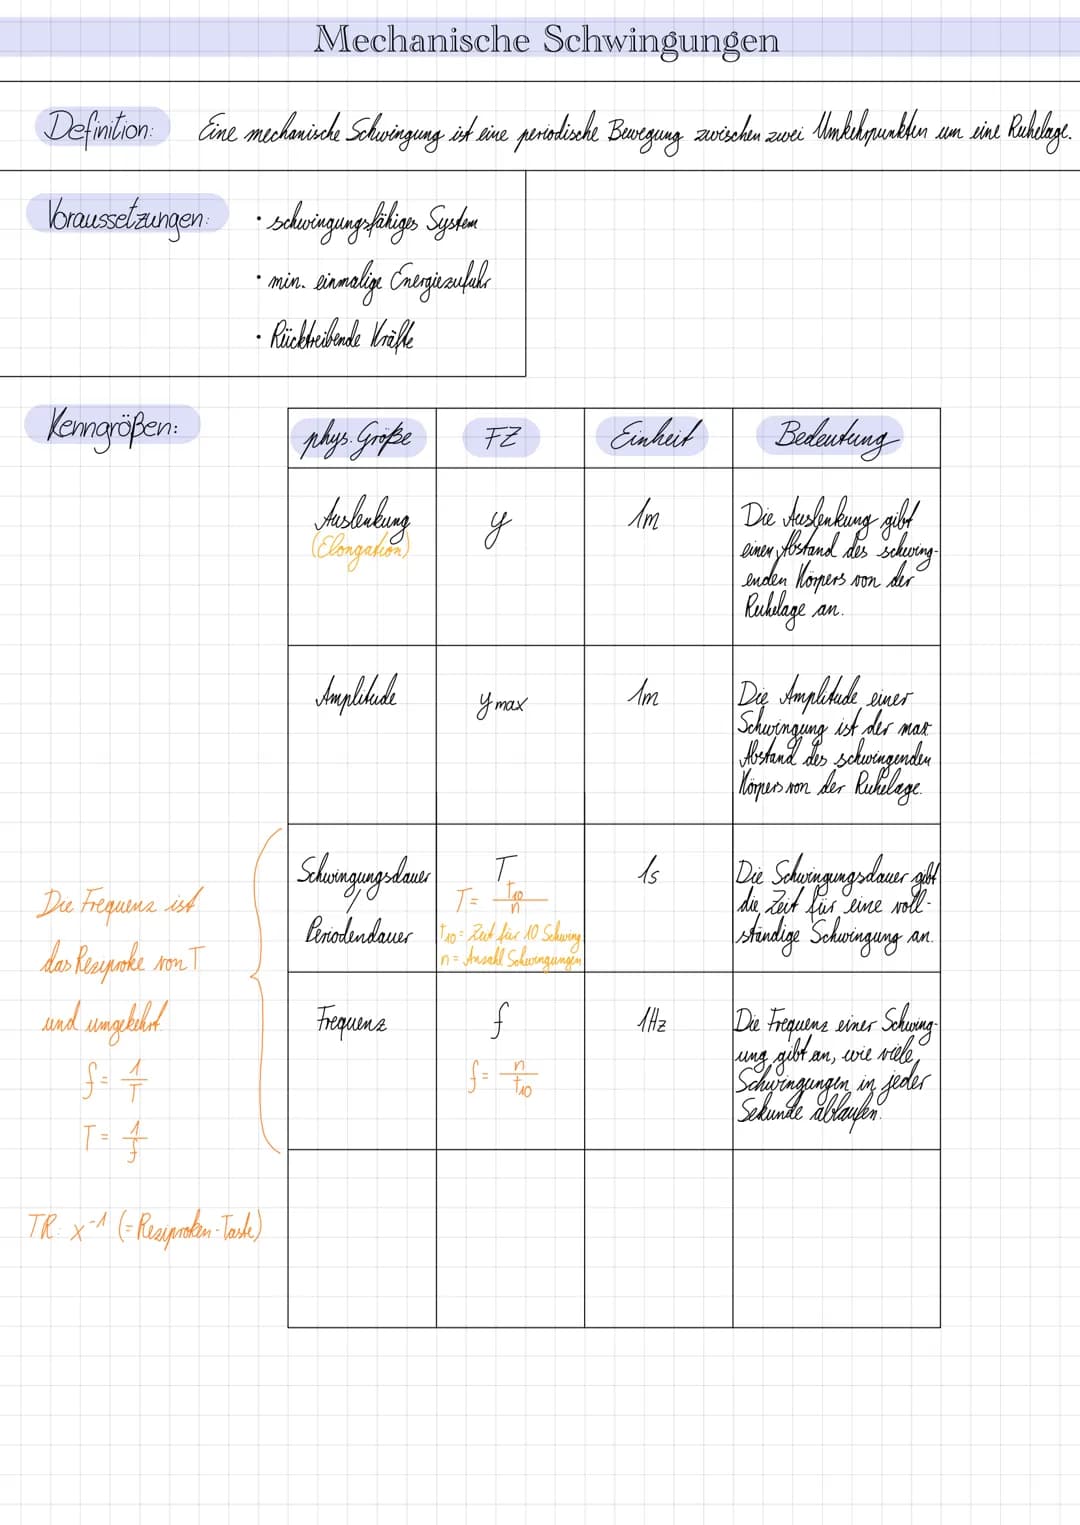 Mechanische Schwingungen
Definition: Eine mechanische Schwingung ist eine periodische Bewegung zwischen zwei Umkehrpunkten um eine Ruhelage.
Voraussetzungen:
• schwingungsfähiges System
• min. einmalige Energiezufuhr
• Rücktreibende Kräfte
Kenngrößen:
phys. Größe FZ Einheit Bedeutung
Auslenkung
(Elongation)
y
1m
Die Auslenkung gibt
einen Abstand des schwing-
enden Körpers von der
Ruhelage an.
Amplitude
y max
1m
Die Amplitude einer
Schwingung ist der max
Abstand des schwingenden
Körpers von der Ruhelage.
Schwingungsdauer
/
Periodendauer
T
T = t₁₀/n
t₁₀ = Zeit für 10 Schwing.
n = Anzahl Schwingungen
1s
Die Schwingungsdauer gibt
die Zeit für eine voll-
ständige Schwingung an.
Frequenz
f
f = n/t₁₀
1Hz
Die Frequenz einer Schwing-
ung gibt an, wie viele
Schwingungen in jeder
Sekunde ablaufen.
Die Frequenz ist
das Reziproke von T
und umgekehrt
f = 1/T
T = 1/f
TR: x⁻¹ (= Reziproken-Taste)